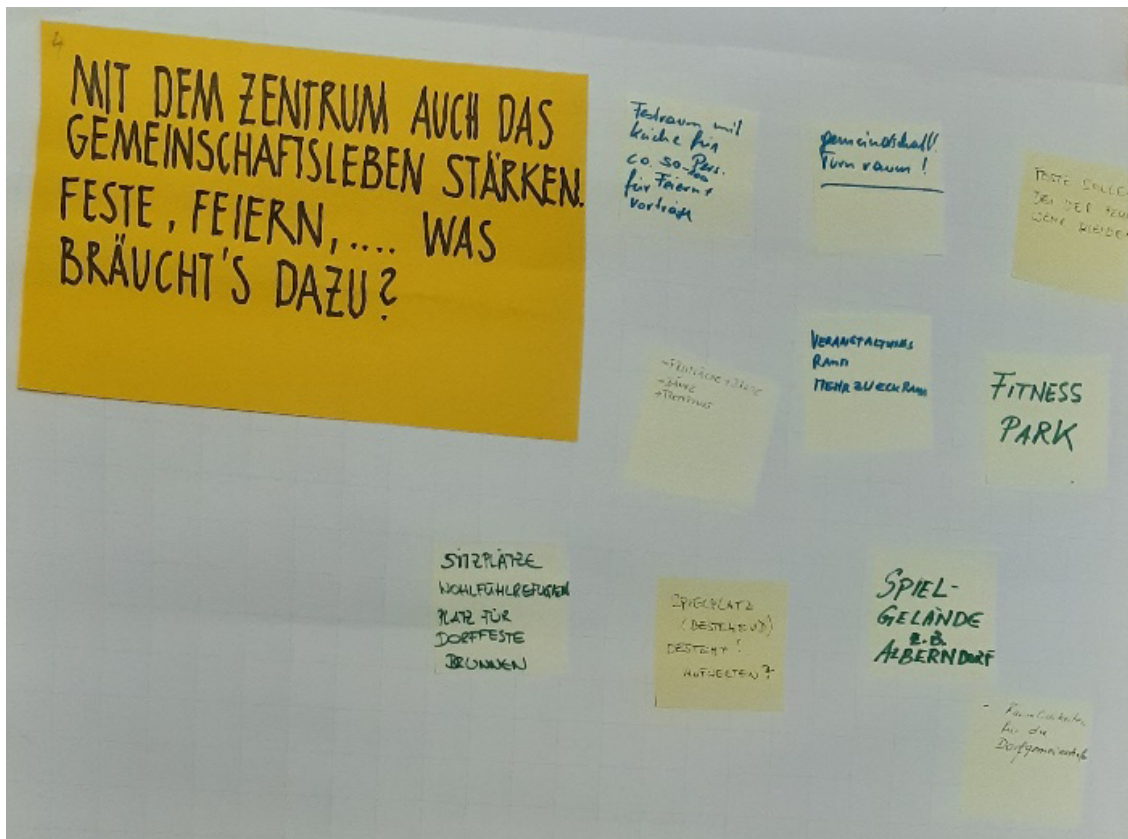 4
MIT DEM ZENTRUM AUCH DAS
GEMEINSCHAFTSLEBEN STÄRKEN.
FESTE, FEIERN,.... WAS
BRÄUCHT'S DAZU?
Festraum mit
Küche für
für Feiern +
Vorträge
gemeindschaftl.
Turnraum!
FESTE SOLLEN
BEI DER
WEHR BLEIBEN
VERANSTALTUNGS
RAUM
MEHRZWECKRAUM
FITNESS
PARK
SITZPLÄTZE
WOHLFÜHLREFUGIEN
PLATZ FÜR
DORFFESTE
BRUNNEN
SPIELPLATZ
(BESTEHEND)
BESTEHT!
AUFWERTEN?
SPIEL-
GELÄNDE
z.B.
ALBERNDORF
- Räumlichkeiten
für die
Dorfgemeinschaft